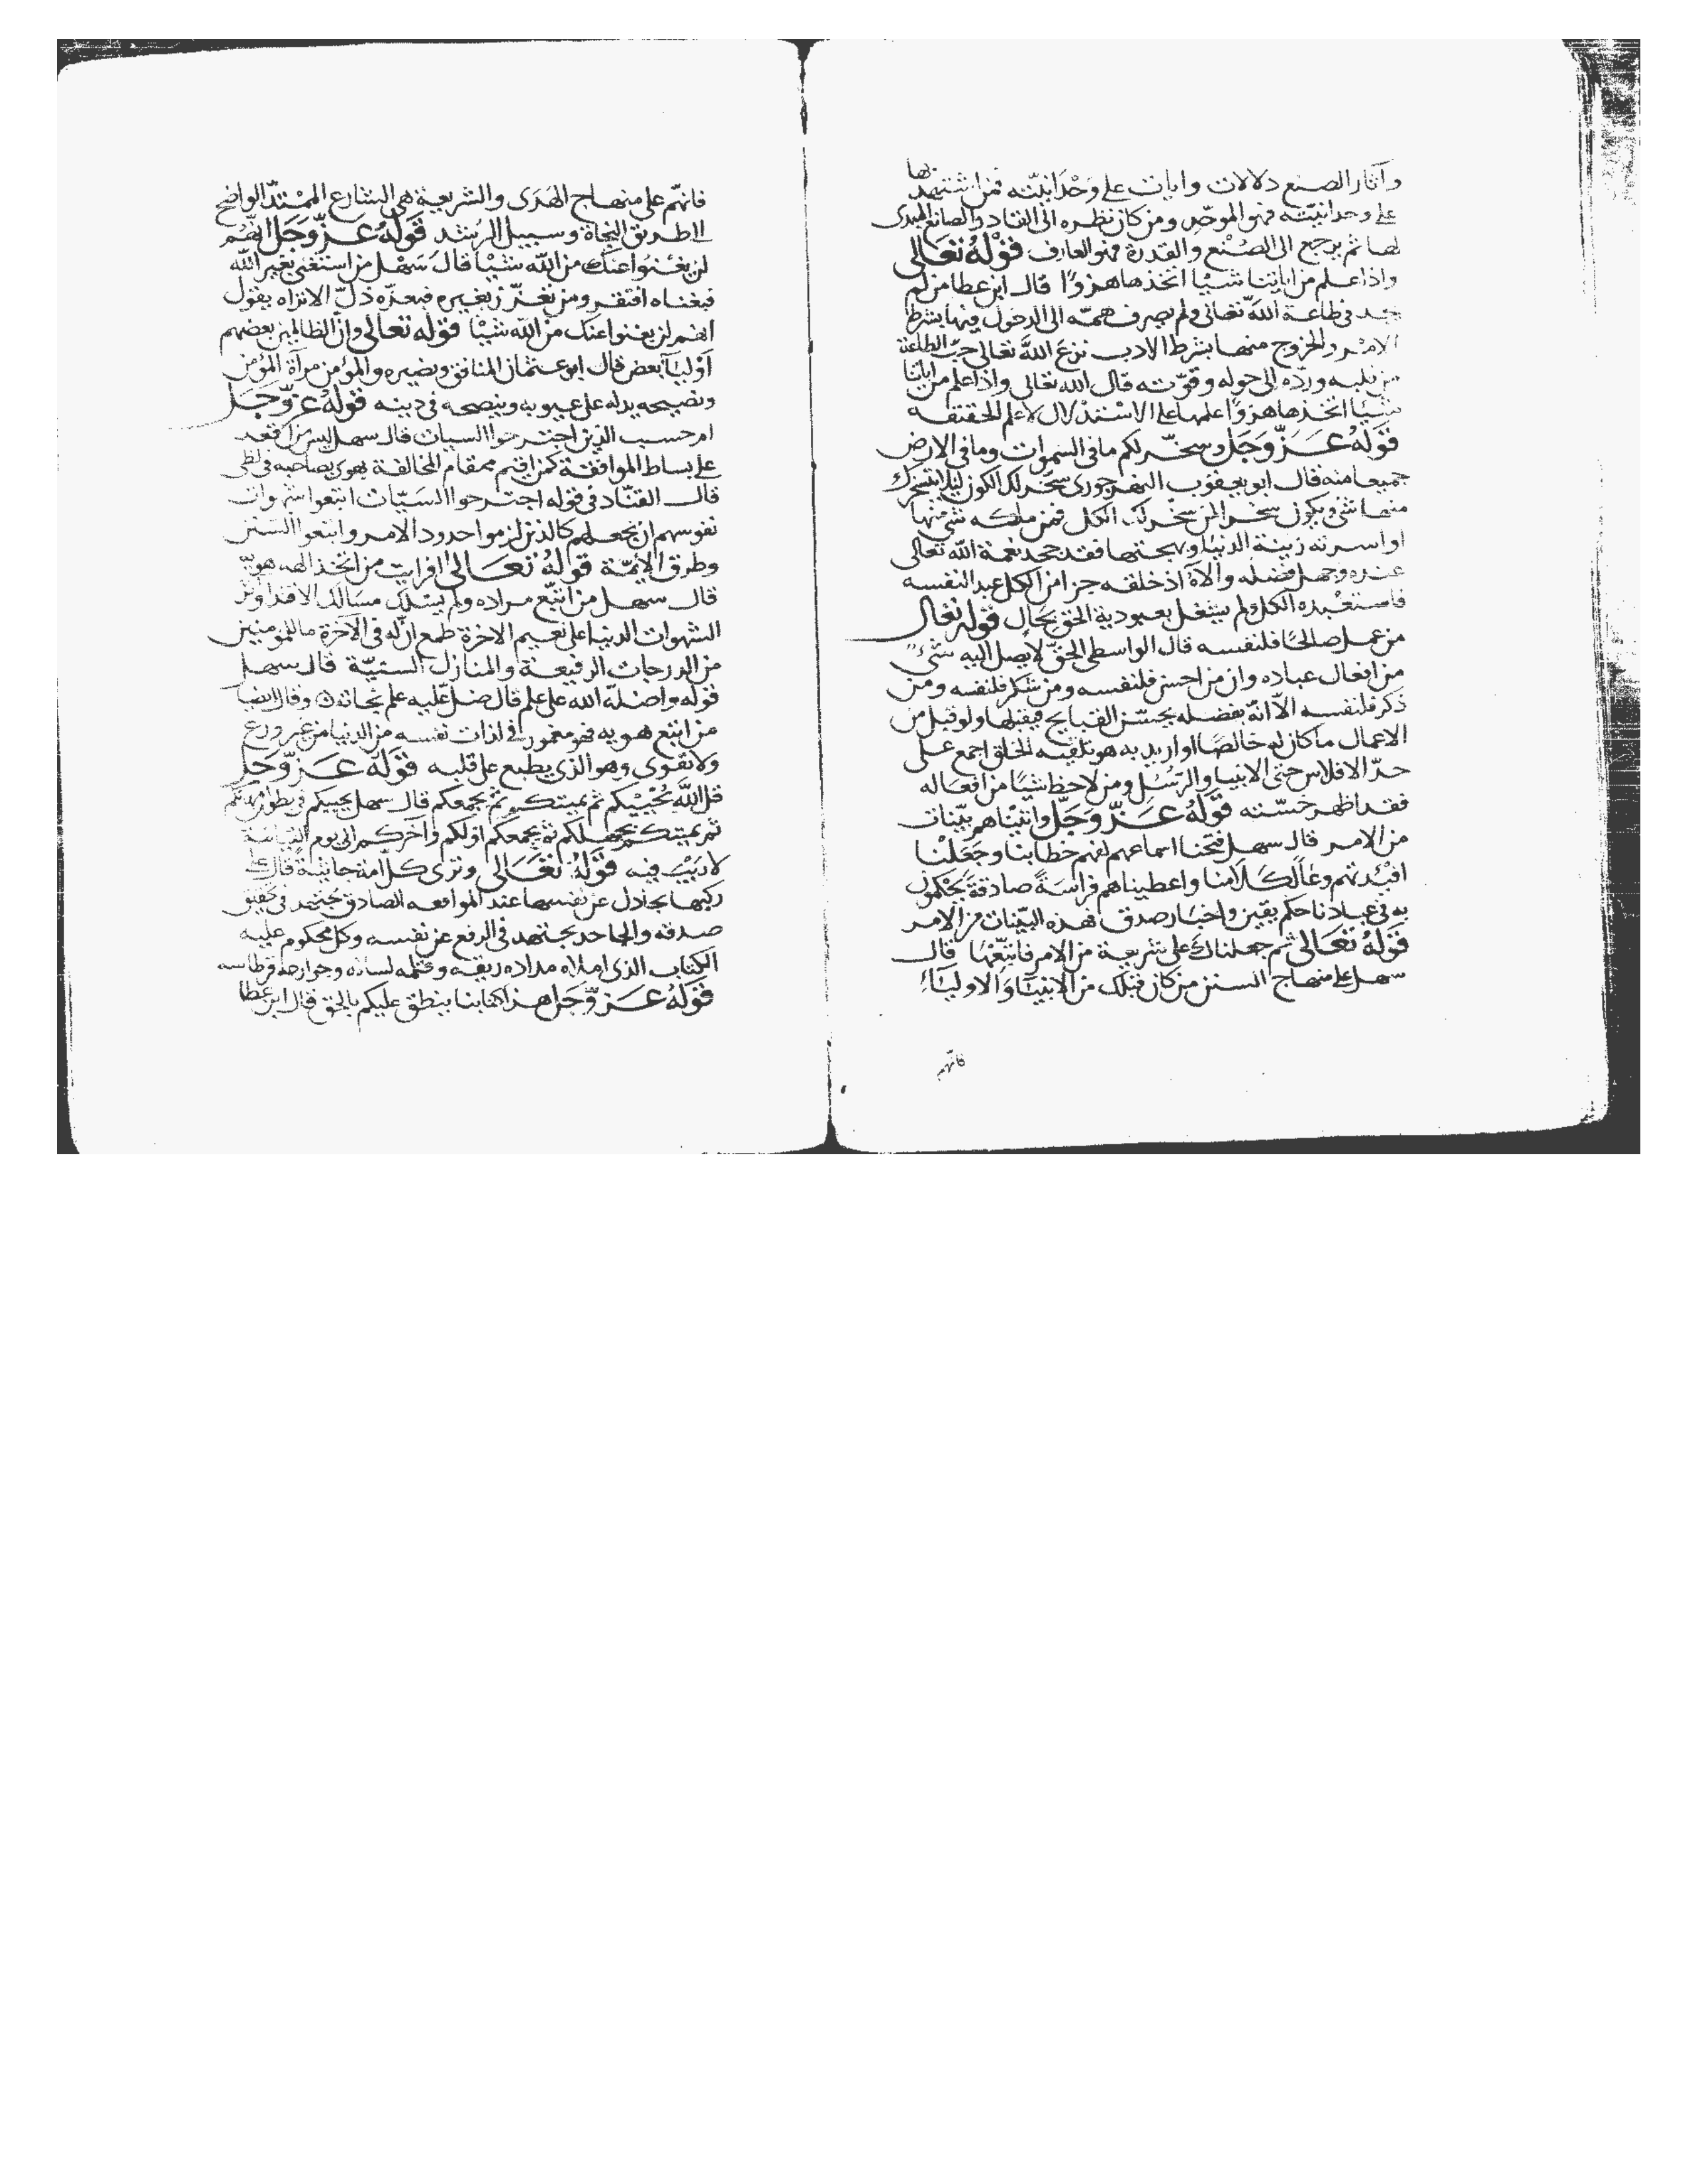 وآثار الصنع دلالات وايات على وحدانيته فمن استشهد بها
على وحدانيته فهو الموحد ومن كان نظره الى القادر والصانع المبدى
لها ثم يرجع الى الصنع والقدرة فهو العارف قوله تعالى
واذا علم من اياتنا شيا اتخذها هزوًا قال ابن عطا من لم
يجد فى طاعة الله تعالى ولم يصرف همته الى الدخول فيها بشرط
الامر والخروج منها بشرط الادب نزع الله تعالى حب الطاعة
من قلبه وردّه الى حوله وقوّته قال الله تعالى واذا علم من اياتنا
شيا اتخذها هزوًا علمها على الاستدلال لا علم الحقيقة
قوله عزّ وجلّ وسخّر لكم ما فى السموات وما فى الارض
جميعا منه قال ابو يعقوب النهرجورى سخر لك الكون ليلا يتسخرك
منها شى ويكون سخر المن سخر لك الكل فمن ملكه شى منها
او اسرته زينة الدنيا وبهجتها فقد جحد نعمة الله تعالى
عنده وجهل فضله وآلآه اذ خلقه حرا من الكل عبدا لنفسه
فاستعبده الكل ولم يشغل بعبودية الحق بحال قوله تعالى
من عمل صالحًا فلنفسه قال الواسطى الحقّ لا يصل اليه شىء
من افعال عباده وان من احسن فلنفسه ومن شكر فلنفسه ومن
ذكر فلنفسه الّا انّه بفضله يحسّن القبايح فيقبلها ولو قبل من
الاعمال ما كان له خالصًا او اريد به هو تلقيه الخلق اجمع على
حدّ الافلاس حتى الانبيا والرّسُل ومن لاحظ شيًا من افعاله
فقد اظهر خسّته قوله عزّ وجلّ وآتيناهم بيّنات
من الامر قال سهل فتحنا اسماعهم لفهم خطابنا وجعلنا
افئدتهم وعاًلكلامنا واعطيناهم فراسةً صادقةً يحكمون
به فى عبادنا حكم يقين واخبار صدق فهذه البيّنات من الامر
قوله تعالى ثم جعلناك على شريعة من الامر فاتبّعها قال
سهل على منهاج السنن من كان قبلك من الانبيا والاوليآء
فانهم
فانهّم على منهاج الهدى والشريعة هى الشارع الممتدّ الواضح
الى طريق النجاة وسبيل الرشد قوله عزّ وجلّ انهم
لن يغنوا عنك من الله شيا قال سهل من استغنى بغير الله
فبغناه افتقر ومن تعزّز بغيره فبعزّه ذلّ الا تراه يقول
انهم لن يغنوا عنك من الله شيا قوله تعالى وان الظالمين بعضهم
اوليآ بعض قال ابو عثمان المنافق ونصيره والمؤمن مرآة المؤمن
ونصيحه يدله على عيوبه وينصحه فى دينه قوله عزّ وجلّ
ام حسب الذين اجترحوا السيات قال سهل ليس من اقعد
على بساط الموافقة كمن اقيم بمقام المخالفة يهوى بصاحبه فى لظى
قال القتّاد فى قوله اجترحوا السيّات اتبعوا شهوات
نفوسهم ان نجعلهم كالذين لزموا حدود الامر واتبعوا السنن
وطرق الايمّة قوله تعالى افرايت من اتخذ الهه هويه
قال سهل من اتبّع مراده ولم يسلك مسالك الاقتدا وآثر
الشهوات الدنيا على نعيم الاخرة طمع ان له فى الآخرة ما للمومنين
من الدرجات الرفيعة والمنازل السنيّة قال سهل
قوله واضلّه الله على علم قال ضل عليه علم نجاته وقال ايضا
من اتبع هويه فهو مغمور فى لذات نفسه من الدنيا من غير ورع
ولا تقوى وهو الذى يطبع على قلبه قوله عزّ وجلّ
قل الله يُحييكم ثم يميتكم ثمّ يجمعكم قال سهل يحييكم فى بطون امهاتكم
ثم يميتكم بجهلكم ثم يجمعكم اولكم وآخركم الى يوم القيامة
لا ريب فيه قوله تعالى وترى كلّ امة جاثيةً قال
ركبها يجادل عن نفسها عند الموافعه الصادق يجتهد فى تحقيق
صدقه والجاحد يجتهد فى الرفع عن نفسه وكل محكوم عليه
الكتاب الذى املاه مداده ريقه وقلمه لسانه وجوارحه قرطاسه
قوله عزّ وجلّ هذا كتابنا ينطق عليكم بالحق قال ابن عطا